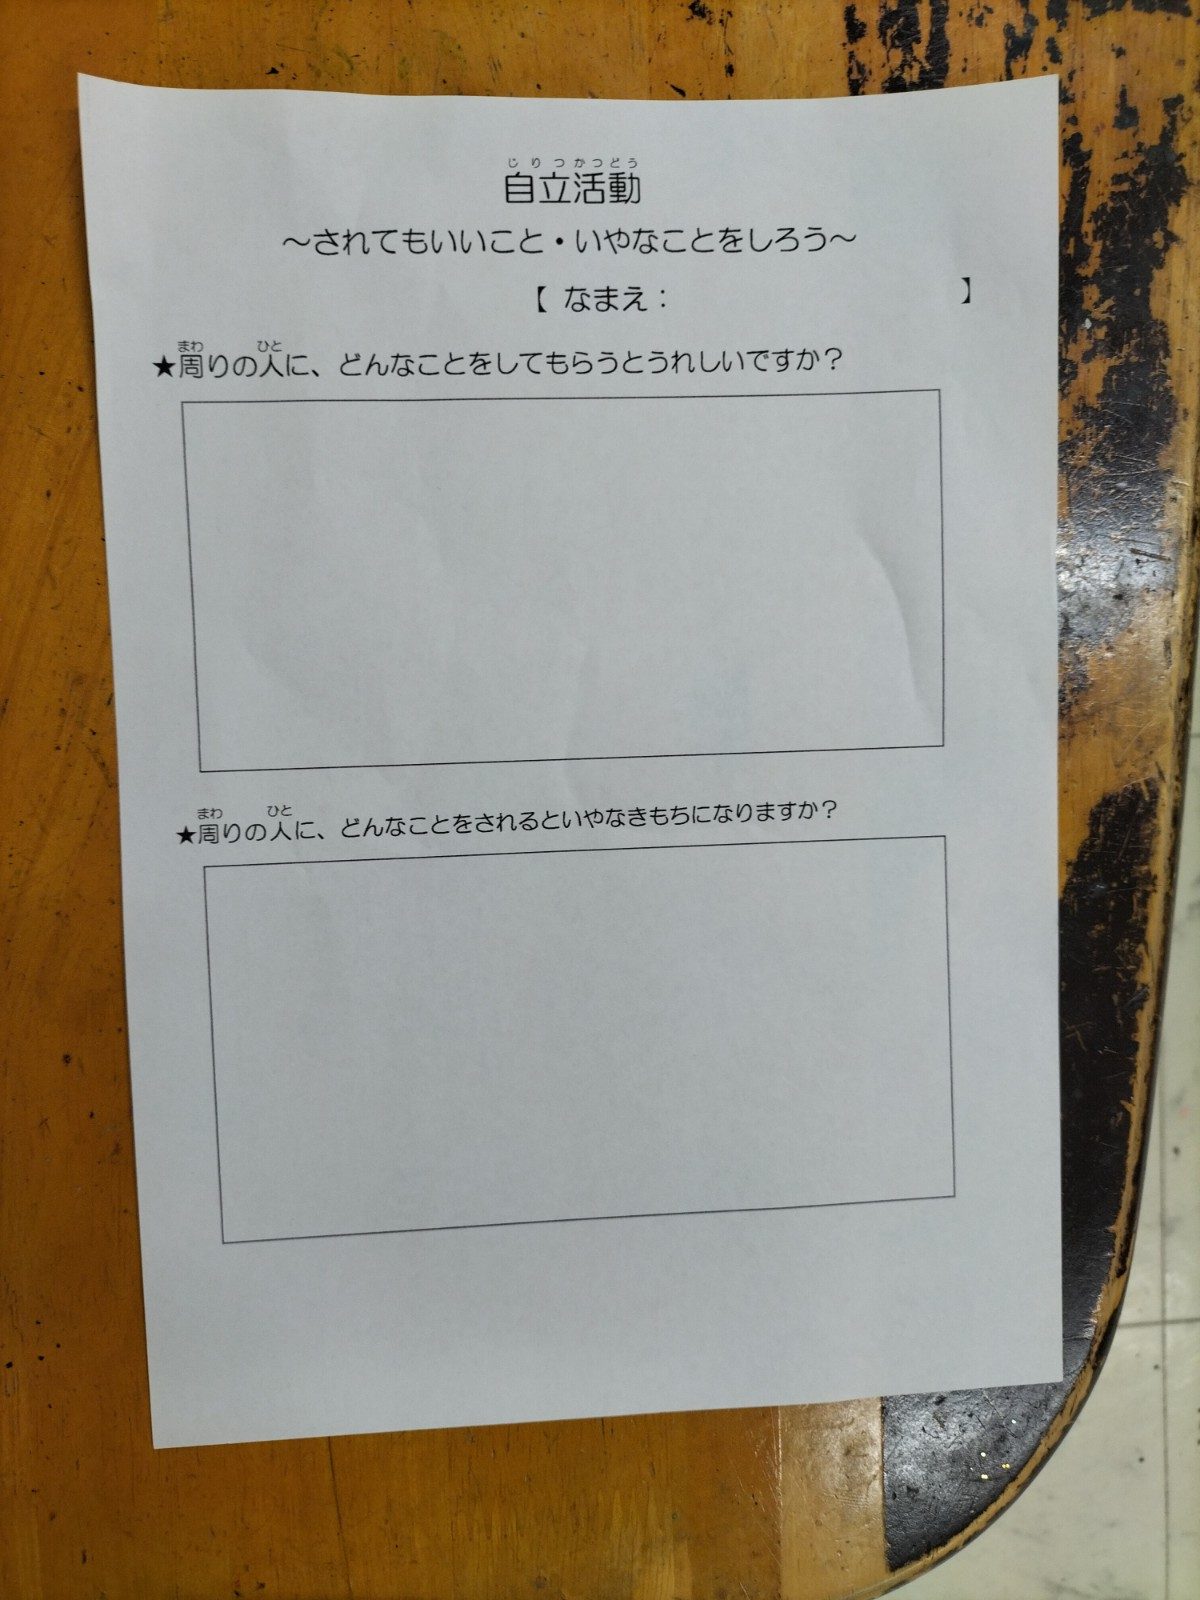 じりつかつどう
自立活動
～されてもいいこと・いやなことをしろう～
【 なまえ： 】
まわ ひと
★周りの人に、どんなことをしてもらうとうれしいですか？
まわ ひと
★周りの人に、どんなことをされるといやなきもちになりますか？